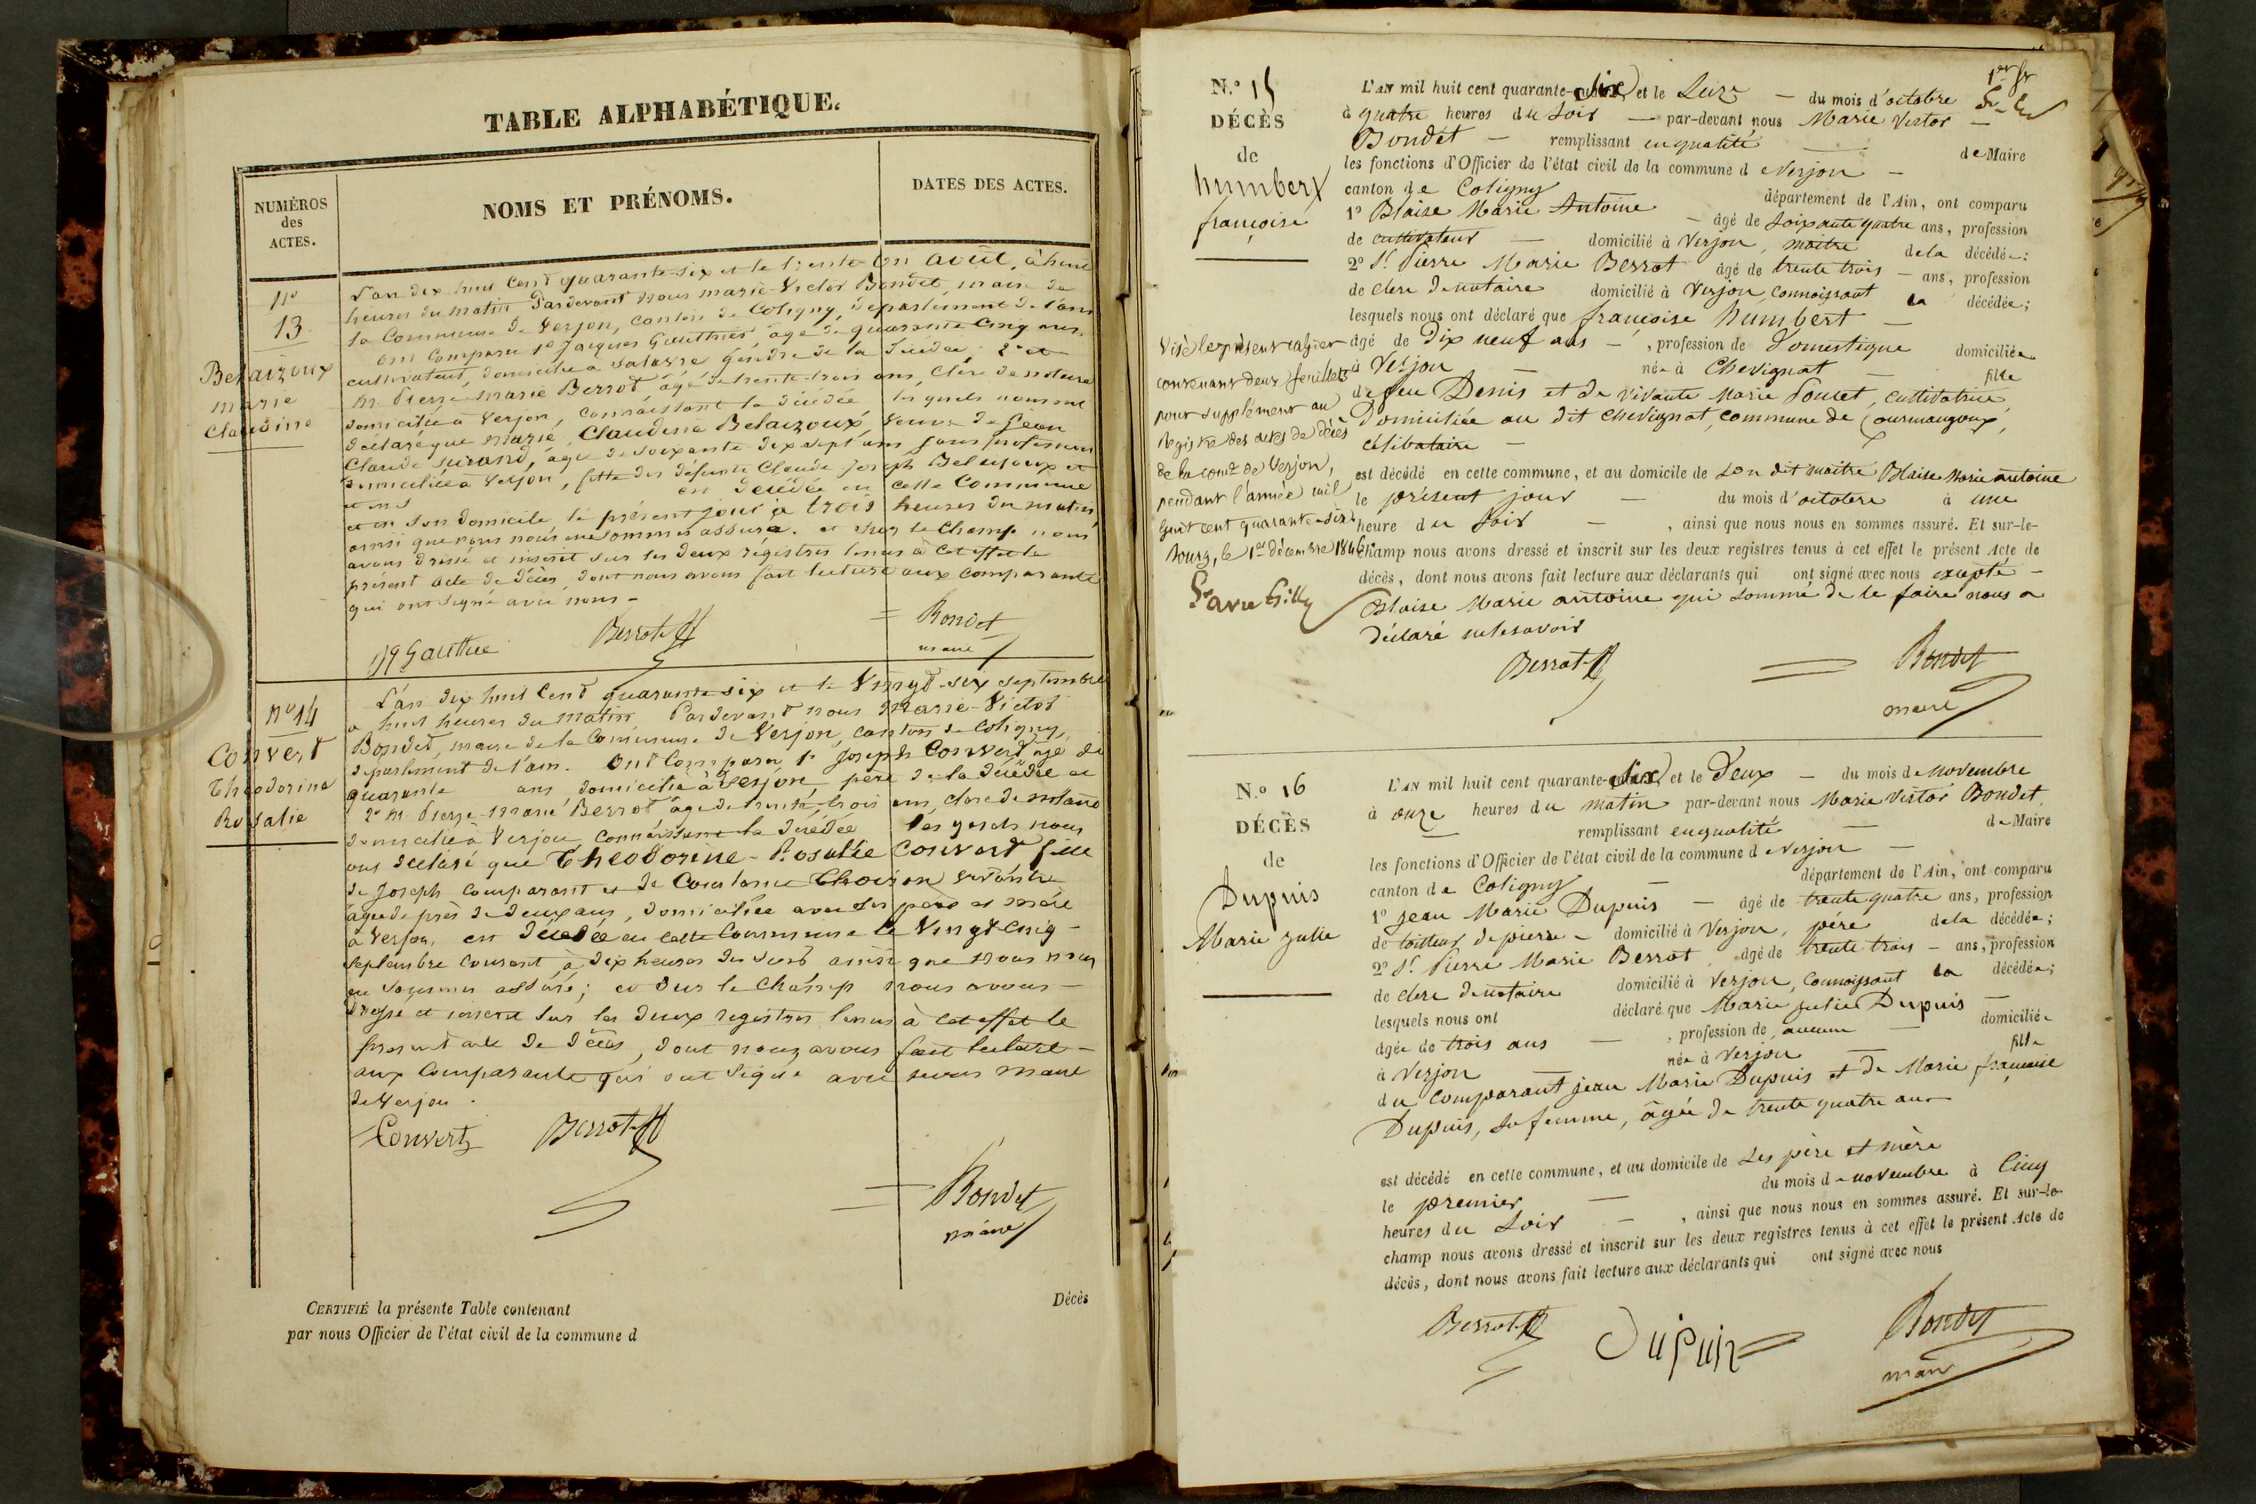 TABLE ALPHABÉTIQUE.
NUMÉROS
des
ACTES.
NOMS ET PRÉNOMS.
DATES DES ACTES.
N°
13
Belaizoux
marie
Claudine
L'an dix huit cent quarante-six et le trente-un août, à huit
heures du matin Pardevant nous marie-Victor Bondet, maire de
la Commune de Verjon, canton de Coligny, département de l'ain
ont comparu 1° Jacques Gauthier, âgé de quarante cinq ans,
cultivateur, domicilié à Salavre gendre de la décédée; 2° et
Mr Pierre-marie Berrod âgé de trente-trois ans, Clerc de notaire
domicilié à Verjon, connaissant la décédée lesquels nous ont
déclaré que marie Claudine Belaizoux, Veuve de Jean
Claude , âgée de soixante dix sept ans sans profession
domiciliée à Verjon, fille des défunts Claude Joseph et
est décédée en cette Commune
et en son domicile, le présent jour à trois heures du matin,
ainsi que nous nous en sommes assuré. et sur le Champ nous
avons dressé et inscrit sur les deux régistres tenus à cet effet le
présent acte de décès, dont nous avons fait lecture aux comparants
qui ont signé avec nous -
Gauthie Berrod Bondet
maire
n° 14
Convert
Théodorine
Rosalie
L'an dix huit Cent quarante-six et le Vingt-six septembre
à huit heures du matin Pardevant nous Marie-Victor
Bondet, maire de la Commune de Verjon, canton de Coligny,
département de l'ain. Ont Comparu 1° Joseph Convert âgé de
quarante ans domicilié à Verjon, père de la décédée et
2° Mr Pierre-marie Berrod âgé de trente-trois ans, clerc de notaire
domicilié à Verjon Connaissant la décédée lesquels nous
ont déclaré que Théodorine-Rosalie Convert fille
de Joseph comparant et de Constance vivante
âgée de près de deux ans, domiciliée avec ses père et mère
à Verjon, est décédée en cette Commune le Vingt cinq -
Septembre Courant à dix heures du soir ainsi que nous nous
en sommes assuré; et sur le Champ nous avons -
dressé et inscrit sur les deux registres tenus à cet effet le
présent acte de décès, dont nous avons fait lecture -
aux Comparants qui ont signé avec nous maire
de Verjon.
Convert Berrod
Bondet
maire
CERTIFIÉ la présente Table contenant
par nous Officier de l'état civil de la commune d
Décès
N.° 15
DÉCÈS
de
humbert
françoise
L'AN mil huit cent quarante-six et le Onze — du mois d'octobre
à quatre heures du Soir — par-devant nous Marie Victor —
Bondet — remplissant en qualité — de Maire
les fonctions d'Officier de l'état civil de la commune de Verjon —
canton de Coligny département de l'Ain, ont comparu
1° Blaise Marie Antoine — âgé de soixante quatre ans, profession
de cultivateur — domicilié à Verjon, maître de la décédée;
2° Sr Pierre Marie Berrod âgé de trente trois — ans, profession
de clerc de notaire domicilié à Verjon, connaissant la décédée;
lesquels nous ont déclaré que françoise humbert —
âgée de Dix neuf ans — , profession de Domestique domiciliée
à Verjon née à Chevignat — fille
de feu Denis et de vivante Marie , cultivatrice,
Domiciliée au dit Chevignat, commune de Courmangoux,
célibataire —
est décédé en cette commune, et au domicile de son dit maître Blaise Marie Antoine
le présent jour — du mois d'octobre à une
heure du Soir — , ainsi que nous nous en sommes assuré. Et sur-le-
champ nous avons dressé et inscrit sur les deux registres tenus à cet effet le présent Acte de
décès, dont nous avons fait lecture aux déclarants qui ont signé avec nous excepté —
Blaise Marie Antoine qui sommé de le faire nous a
déclaré ne le savoir
Berrod Bondet
maire
Visé le présent cahier
contenant deux feuillets
pour supplément au
Registre des actes de décès
de la comne de Verjon,
pendant l'année mil
huit cent quarante-six.
Bourg, le 1er décembre 1846.
N.° 16
DÉCÈS
de
Dupuis
Marie julie
L'AN mil huit cent quarante-six et le Deux — du mois de Novembre
à onze heures du matin par-devant nous Marie Victor Bondet,
— remplissant en qualité — de Maire
les fonctions d'Officier de l'état civil de la commune de Verjon —
canton de Coligny — département de l'Ain, ont comparu
1° jean Marie Dupuis — âgé de trente quatre ans, profession
de tailleur de pierre — domicilié à Verjon, père de la décédée;
2° Sr Pierre Marie Berrod âgé de trente trois — ans, profession
de clerc de notaire domicilié à Verjon, connaissant la décédée;
lesquels nous ont déclaré que Marie julie Dupuis —
âgée de trois ans — , profession de aucune — domiciliée
à Verjon née à Verjon — fille
du comparant jean Marie Dupuis et de Marie françoise
Dupuis, sa femme, âgée de trente quatre ans
est décédé en cette commune, et au domicile de ses père et mère
le premier — du mois de novembre à Cinq
heures du Soir — , ainsi que nous nous en sommes assuré. Et sur-le-
champ nous avons dressé et inscrit sur les deux registres tenus à cet effet le présent Acte de
décès, dont nous avons fait lecture aux déclarants qui ont signé avec nous
Berrod Dupuis Bondet
maire